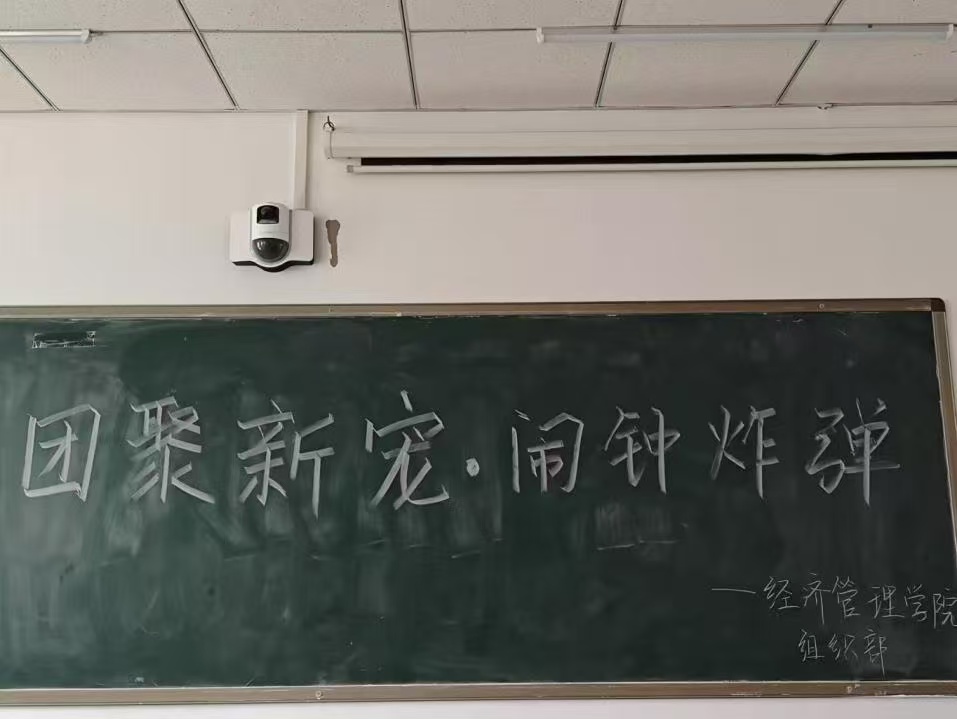 团聚新宠·闹钟炸弹
—经济管理学院
组织部